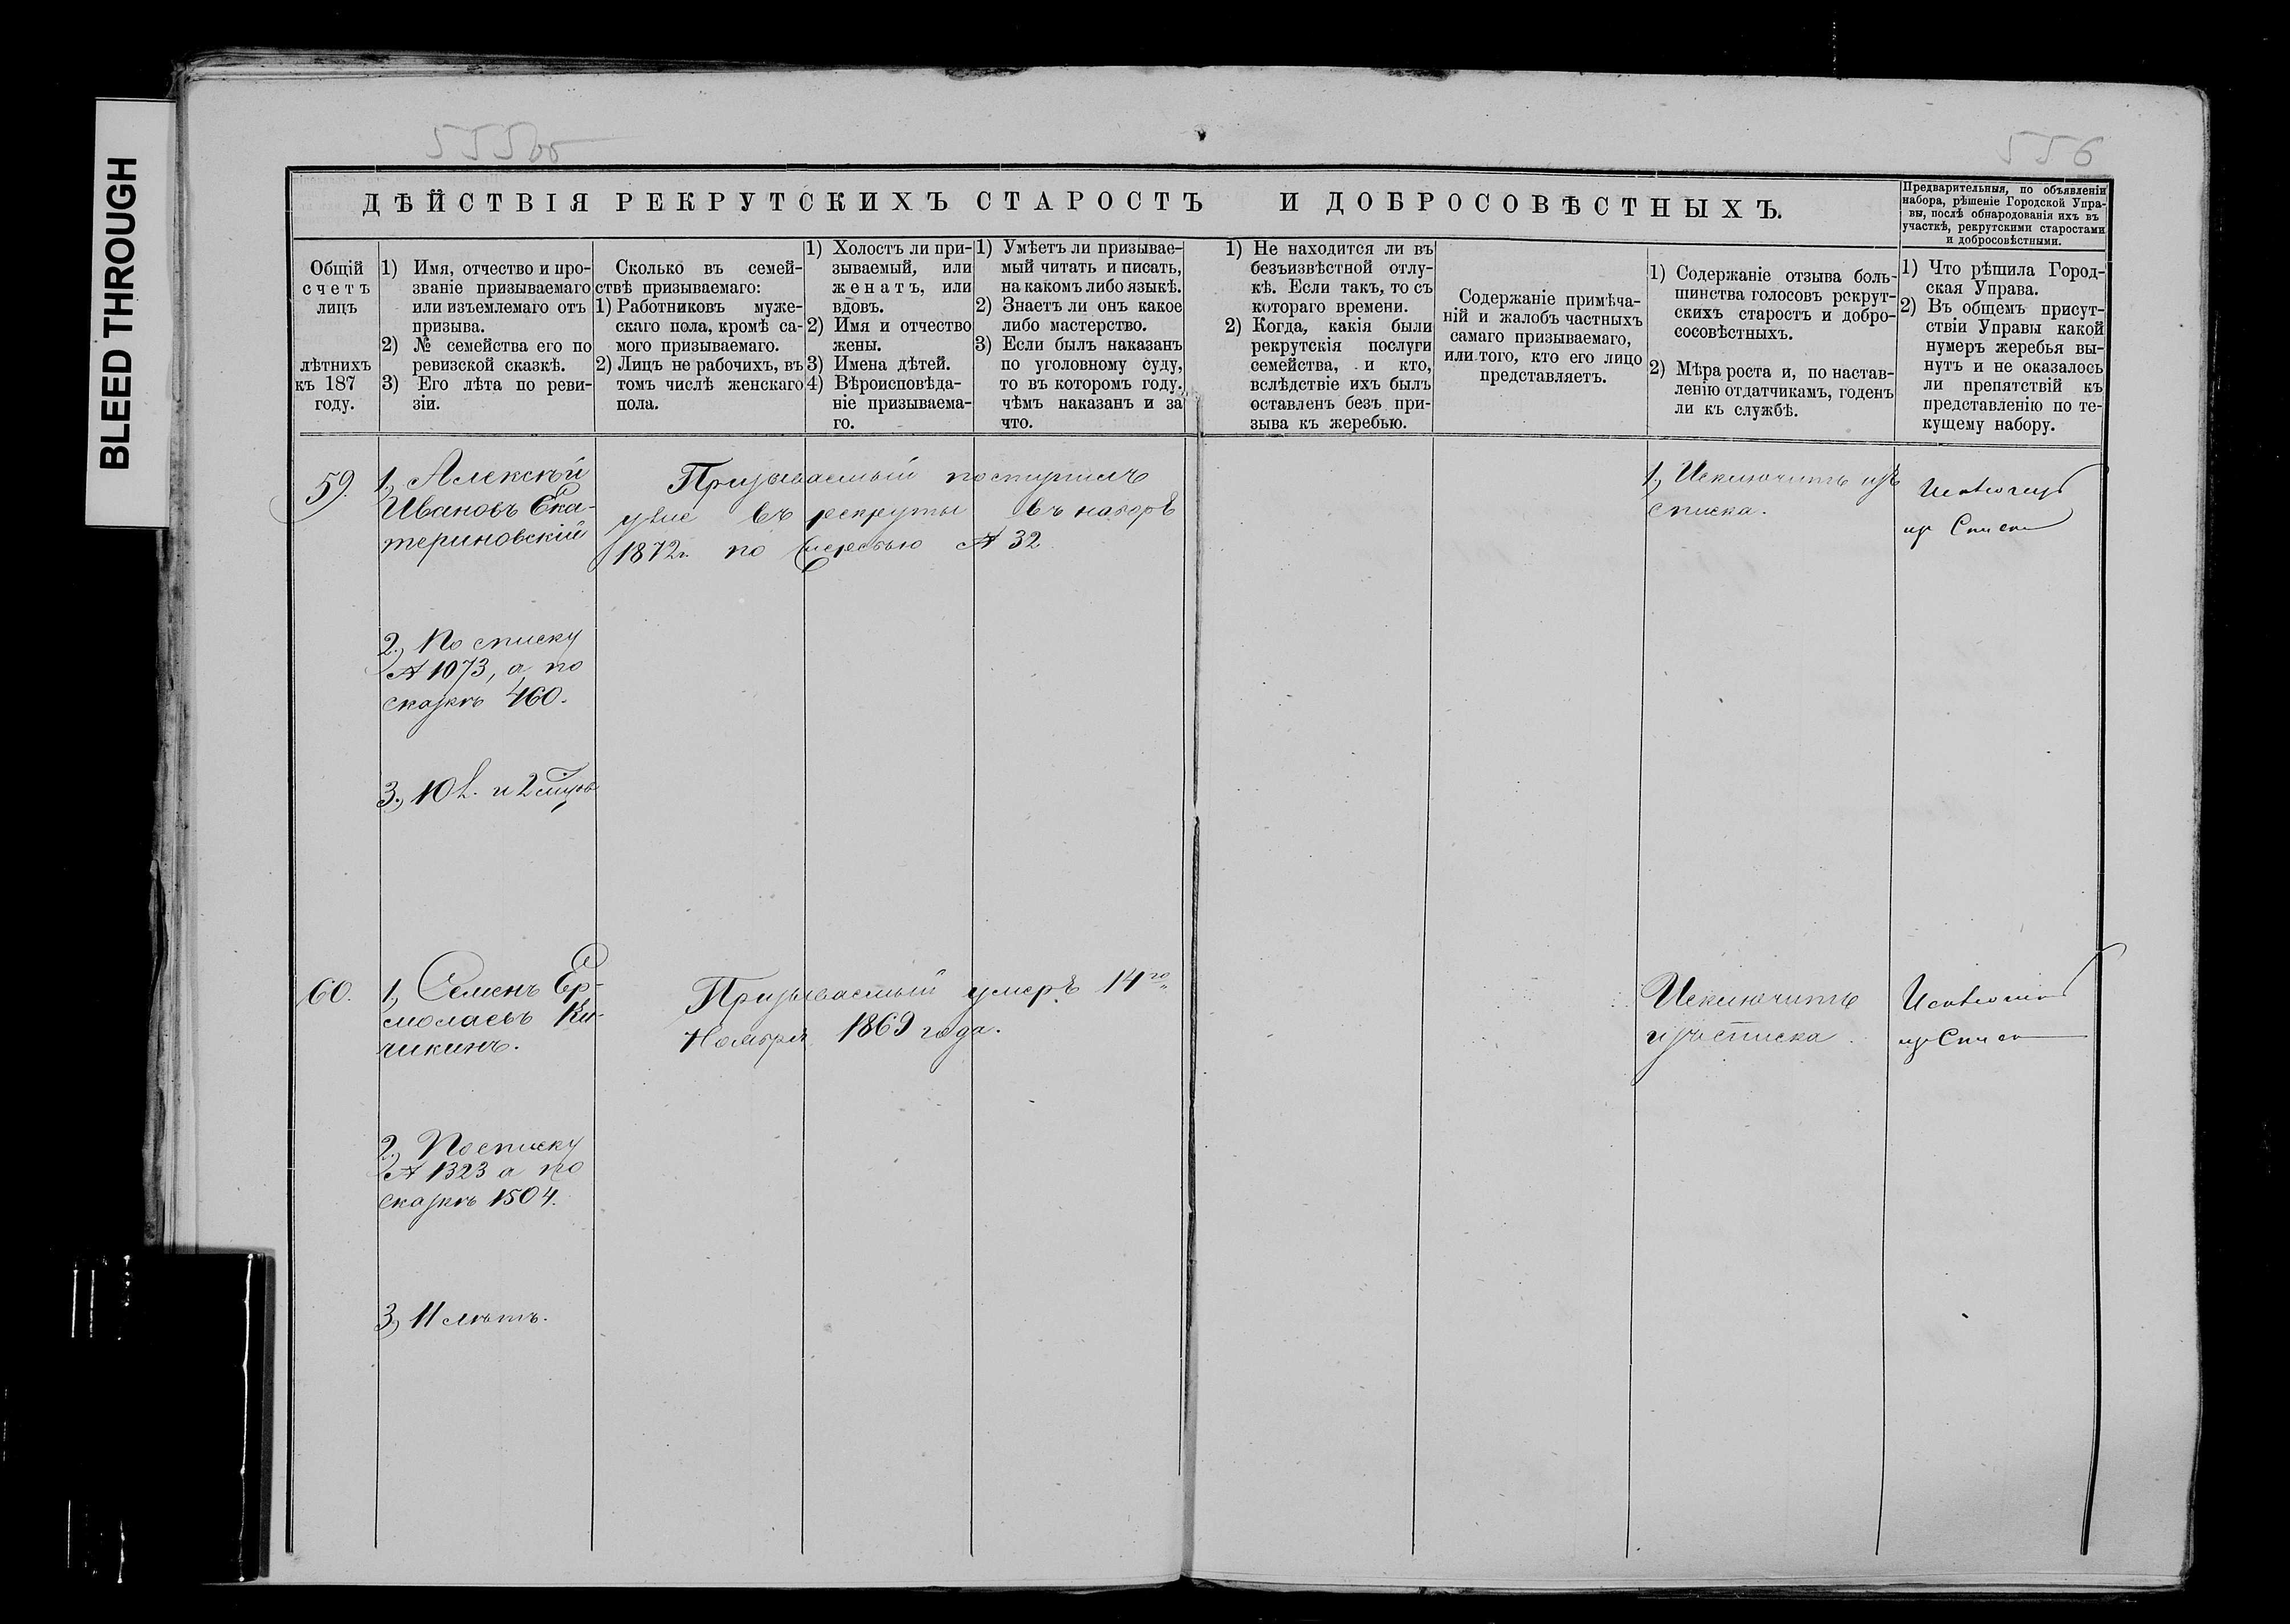 BLEED THROUGH
555об
556
ДѢЙСТВІЯ РЕКРУТСКИХЪ СТАРОСТЪ И ДОБРОСОВѢСТНЫХЪ.
Предварительныя, по объявленіи
набора, рѣшеніе Городской Упра-
вы, послѣ обнародованія ихъ въ
участкѣ, рекрутскими старостами
и добросовѣстными.
Общій
счетъ
лицъ
лѣтнихъ
къ 187
году.
1) Имя, отчество и про-
званіе призываемаго
или изъемлемаго отъ
призыва.
2) № семейства его по
ревизской сказкѣ.
3) Его лѣта по реви-
зіи.
Сколько въ семей-
ствѣ призываемаго:
1) Работниковъ муже-
скаго пола, кромѣ са-
мого призываемаго.
2) Лицъ не рабочихъ, въ
томъ числѣ женскаго
пола.
1) Холостъ ли при-
зываемый, или
женатъ, или
вдовъ.
2) Имя и отчество
жены.
3) Имена дѣтей.
4) Вѣроисповѣда-
ніе призываема-
го.
1) Умѣетъ ли призывае-
мый читать и писать,
на какомъ либо языкѣ.
2) Знаетъ ли онъ какое
либо мастерство.
3) Если былъ наказанъ
по уголовному суду,
то въ которомъ году,
чѣмъ наказанъ и за
что.
1) Не находится ли въ
безъизвѣстной отлу-
кѣ. Если такъ, то съ
котораго времени.
2) Когда, какія были
рекрутскія послуги
семейства, и кто,
вслѣдствіе ихъ былъ
оставленъ безъ при-
зыва къ жеребью.
Содержаніе примѣча-
ній и жалобъ частныхъ
самаго призываемаго,
или того, кто его лицо
представляетъ.
1) Содержаніе отзыва боль-
шинства голосовъ рекрут-
скихъ старостъ и добро-
совѣстныхъ.
2) Мѣра роста и, по настав-
ленію отдатчикамъ, годенъ
ли къ службѣ.
1) Что рѣшила Город-
ская Управа.
2) Въ общемъ присут-
ствіи Управы какой
нумеръ жеребья вы-
нутъ и не оказалось
ли препятствій къ
представленію по те-
кущему набору.
59.
1, Алексѣй
Ивановъ Ека-
териновскій
2, По списку
№ 1073, а по
сказкѣ 460.
3, 10 л. и 2
Призываемый поступилъ
уже въ рекруты въ наборъ
1872 г. по жеребью № 32
1, Исключить изъ
списка.
60.
1, Семенъ Ер-
молаевъ Ки-
чикинъ.
2, По списку
№ 1323 а по
сказкѣ 1504.
3, 11 лѣтъ.
Призываемый умеръ 14го
Ноября 1869 года.
Исключить
изъ списка